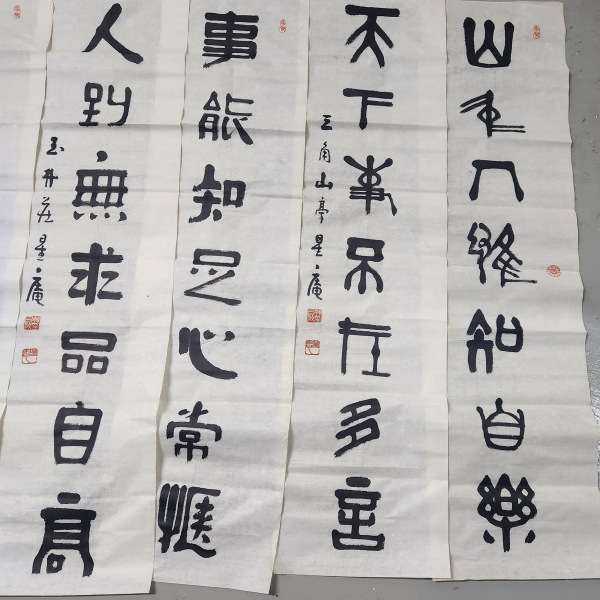 山知自樂
天下事不在多言
三角山亭 星庵
事能知足心常愜
人到無求品自高
玉井莊 星庵